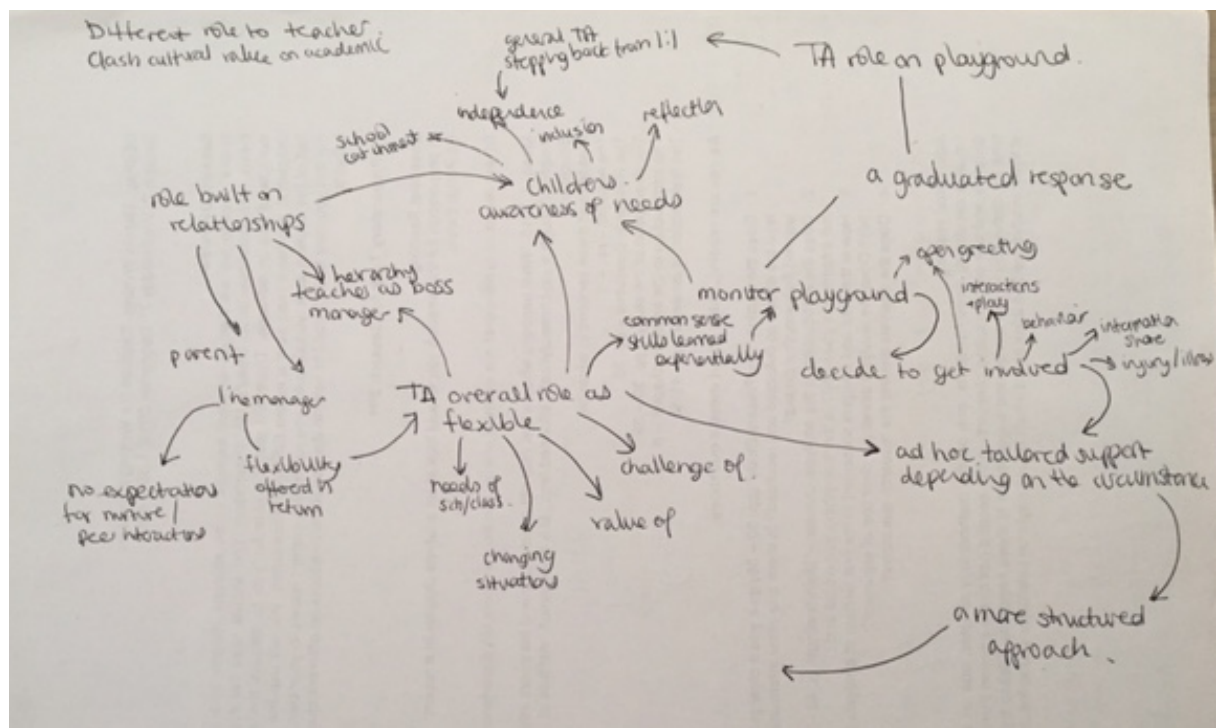 Different role to teacher.
Clash cultural value on academic.
general TA
stepping back from 1:1
TA role on playground.
independence
inclusion
reflection
school
catchment
role built on
relationships
childrens
awareness of needs
a graduated response
hierarchy
teacher as boss
manager
monitor playground
open greeting
interactions
+play
behaviour
information
share
injury/illness
common sense
skills learned
experientially
decide to get involved
parent
line manager
TA overall role as
flexible
no expectation
for nurture/
peer interactions
flexibility
offered in
return
needs of
sch/class.
changing
situations
value of
challenge of.
ad hoc tailored support
depending on the circumstance
a more structured
approach.